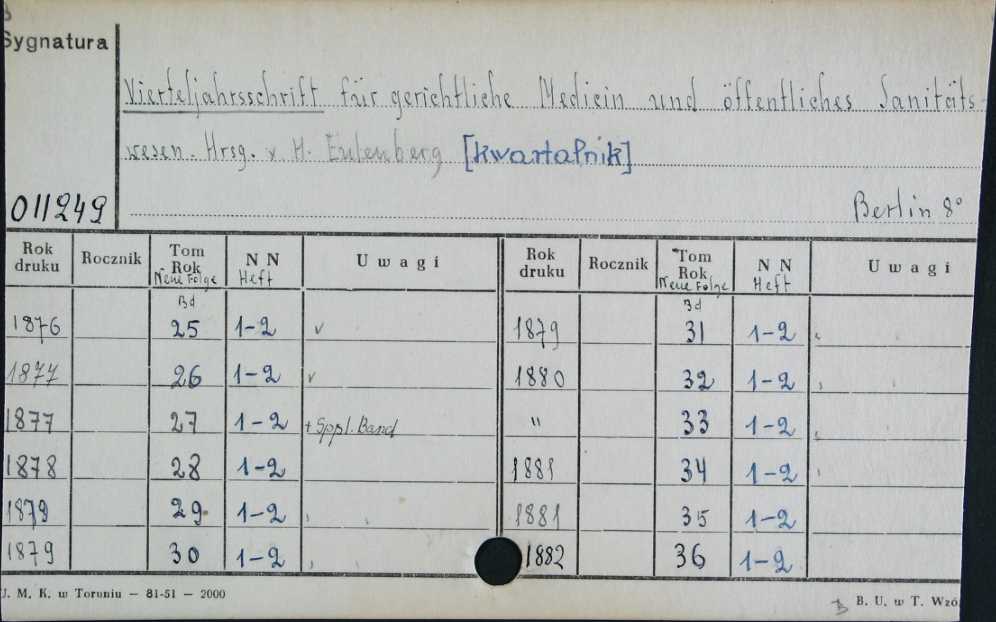 Sygnatura
Vierteljahrsschrift für gerichtliche Medicin und öffentliches Sanitäts-
wesen. Hrsg. v H. Eulenberg [kwartalnik]
011249
Berlin 8°
Rok druku Rocznik Tom Rok Neue Folge N N Heft Uwagi Rok druku Rocznik Tom Rok Neue Folge N N Heft Uwagi
Bd Bd
1876 25 1-2 v 1879 31 1-2
1877 26 1-2 v 1880 32 1-2
1877 27 1-2 + Sppl. Band " 33 1-2
1878 28 1-2 1881 34 1-2
1879 29 1-2 1881 35 1-2
1879 30 1-2 1882 36 1-2
U. M. K. w Toruniu — 81-51 — 2000
B. U. w T. Wzó